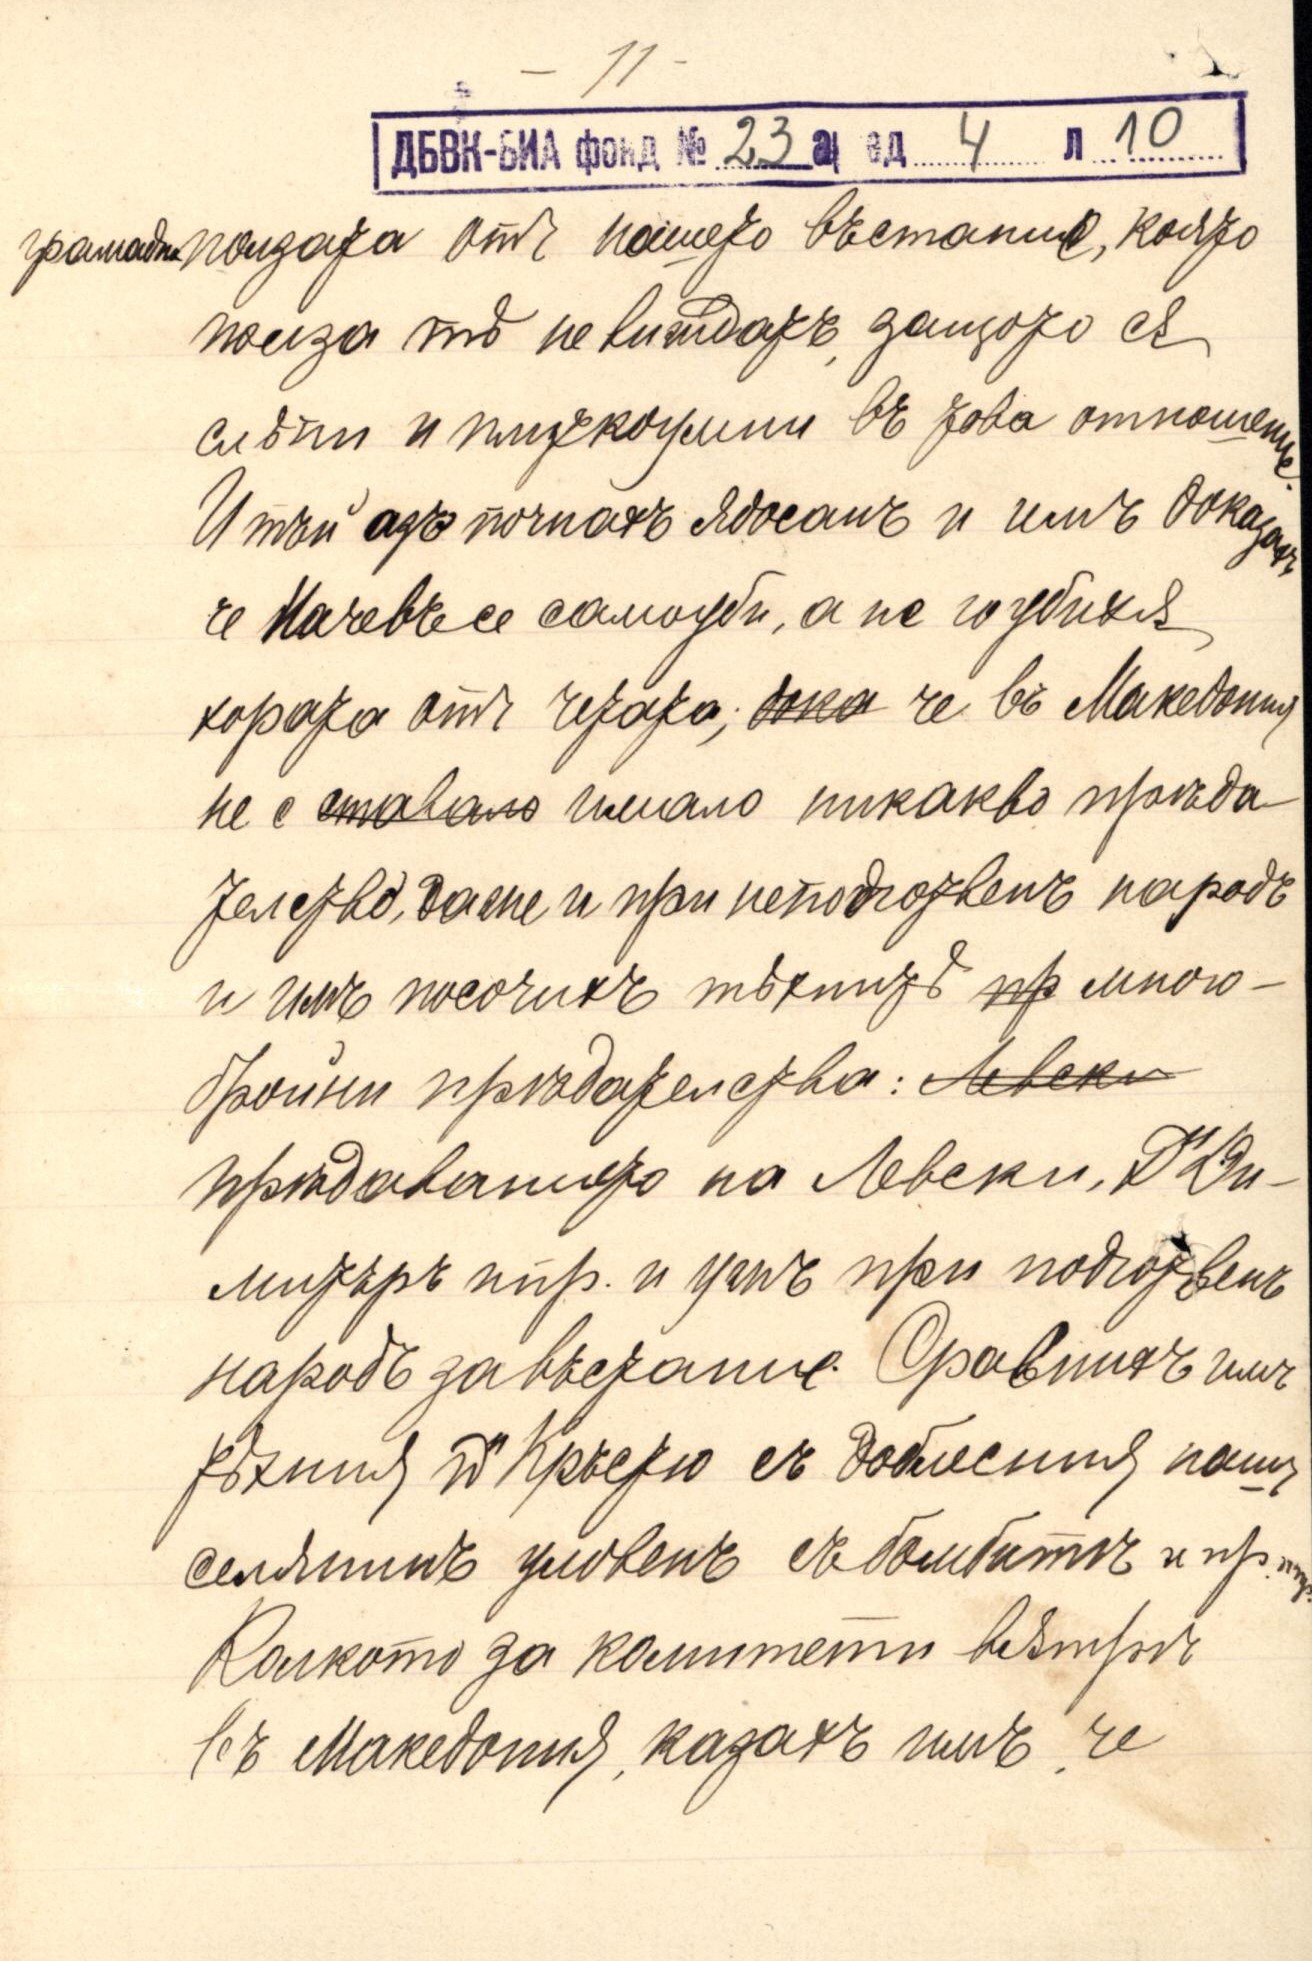 - 11 -
ДБВК-БИА фонд № 23 а ед 4 л 10
грамадна ползата отъ нашето въстание, която
полза тѣ невиждатъ, защото сѫ
слѣпи и плиткоумни въ това отношение.
И тъй азъ почнахъ ядосанъ и имъ доказахъ,
че Мачевъ се самоуби, а не го убихѫ
хората отъ четата; дока че въ Македония
не е ставало имало никакво прѣда-
телство, даже и при неподготвенъ народъ
и имъ посочихъ тѣхнитѣ пр много-
бройни прѣдателства: Левски
прѣдаванието на Левски, Дꙿ Ди-
митъръ и пр. и ужъ при подготвенъ
народъ за въстание. Сравнихъ имъ
тѣхния п. Кръстю съ доблесния нашъ
селянинъ уловенъ съ бомбитѣ и пр. и пр.
Колкото за комитети вѫтрѣ
въ Македония, казахъ имъ, че